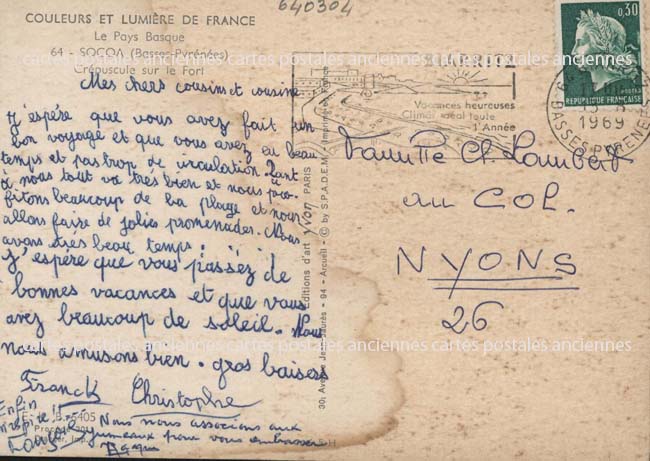 640304
COULEURS ET LUMIÈRE DE FRANCE
Le Pays Basque
64 - SOCOA (Basses-Pyrénées)
Crépuscule sur le Fort
Mes chers cousins et cousine
J'espère que vous avez fait un
bon voyage et que vous avez eu beau
temps et pas trop de circulation. Quant
à nous tout va très bien et nous pro-
fitons beaucoup de la plage et nous
allons faire de jolies promenades. Nous
avons très beau temps.
J'espère que vous passez de
bonnes vacances et que vous
avez beaucoup de soleil. Nous
nous amusons bien. gros baisers
Franck Christophe
Enfin
Nous nous associons aux
jumeaux pour vous embrasser
5405
Éditions d'art Yvon PARIS
30, Avenue Jean-Jaurès - 94 - Arcueil - © by S.P.A.D.E.M.
Imprimé en France
Vacances heureuses
Climat idéal toute
l'Année
0,30
POSTES
REPUBLIQUE FRANÇAISE
1969
BASSES PYRENEES
Famille Ch. Lambert
au COL.
NYONS
26
cartes postales anciennes cartes postales anciennes cartes postales anciennes